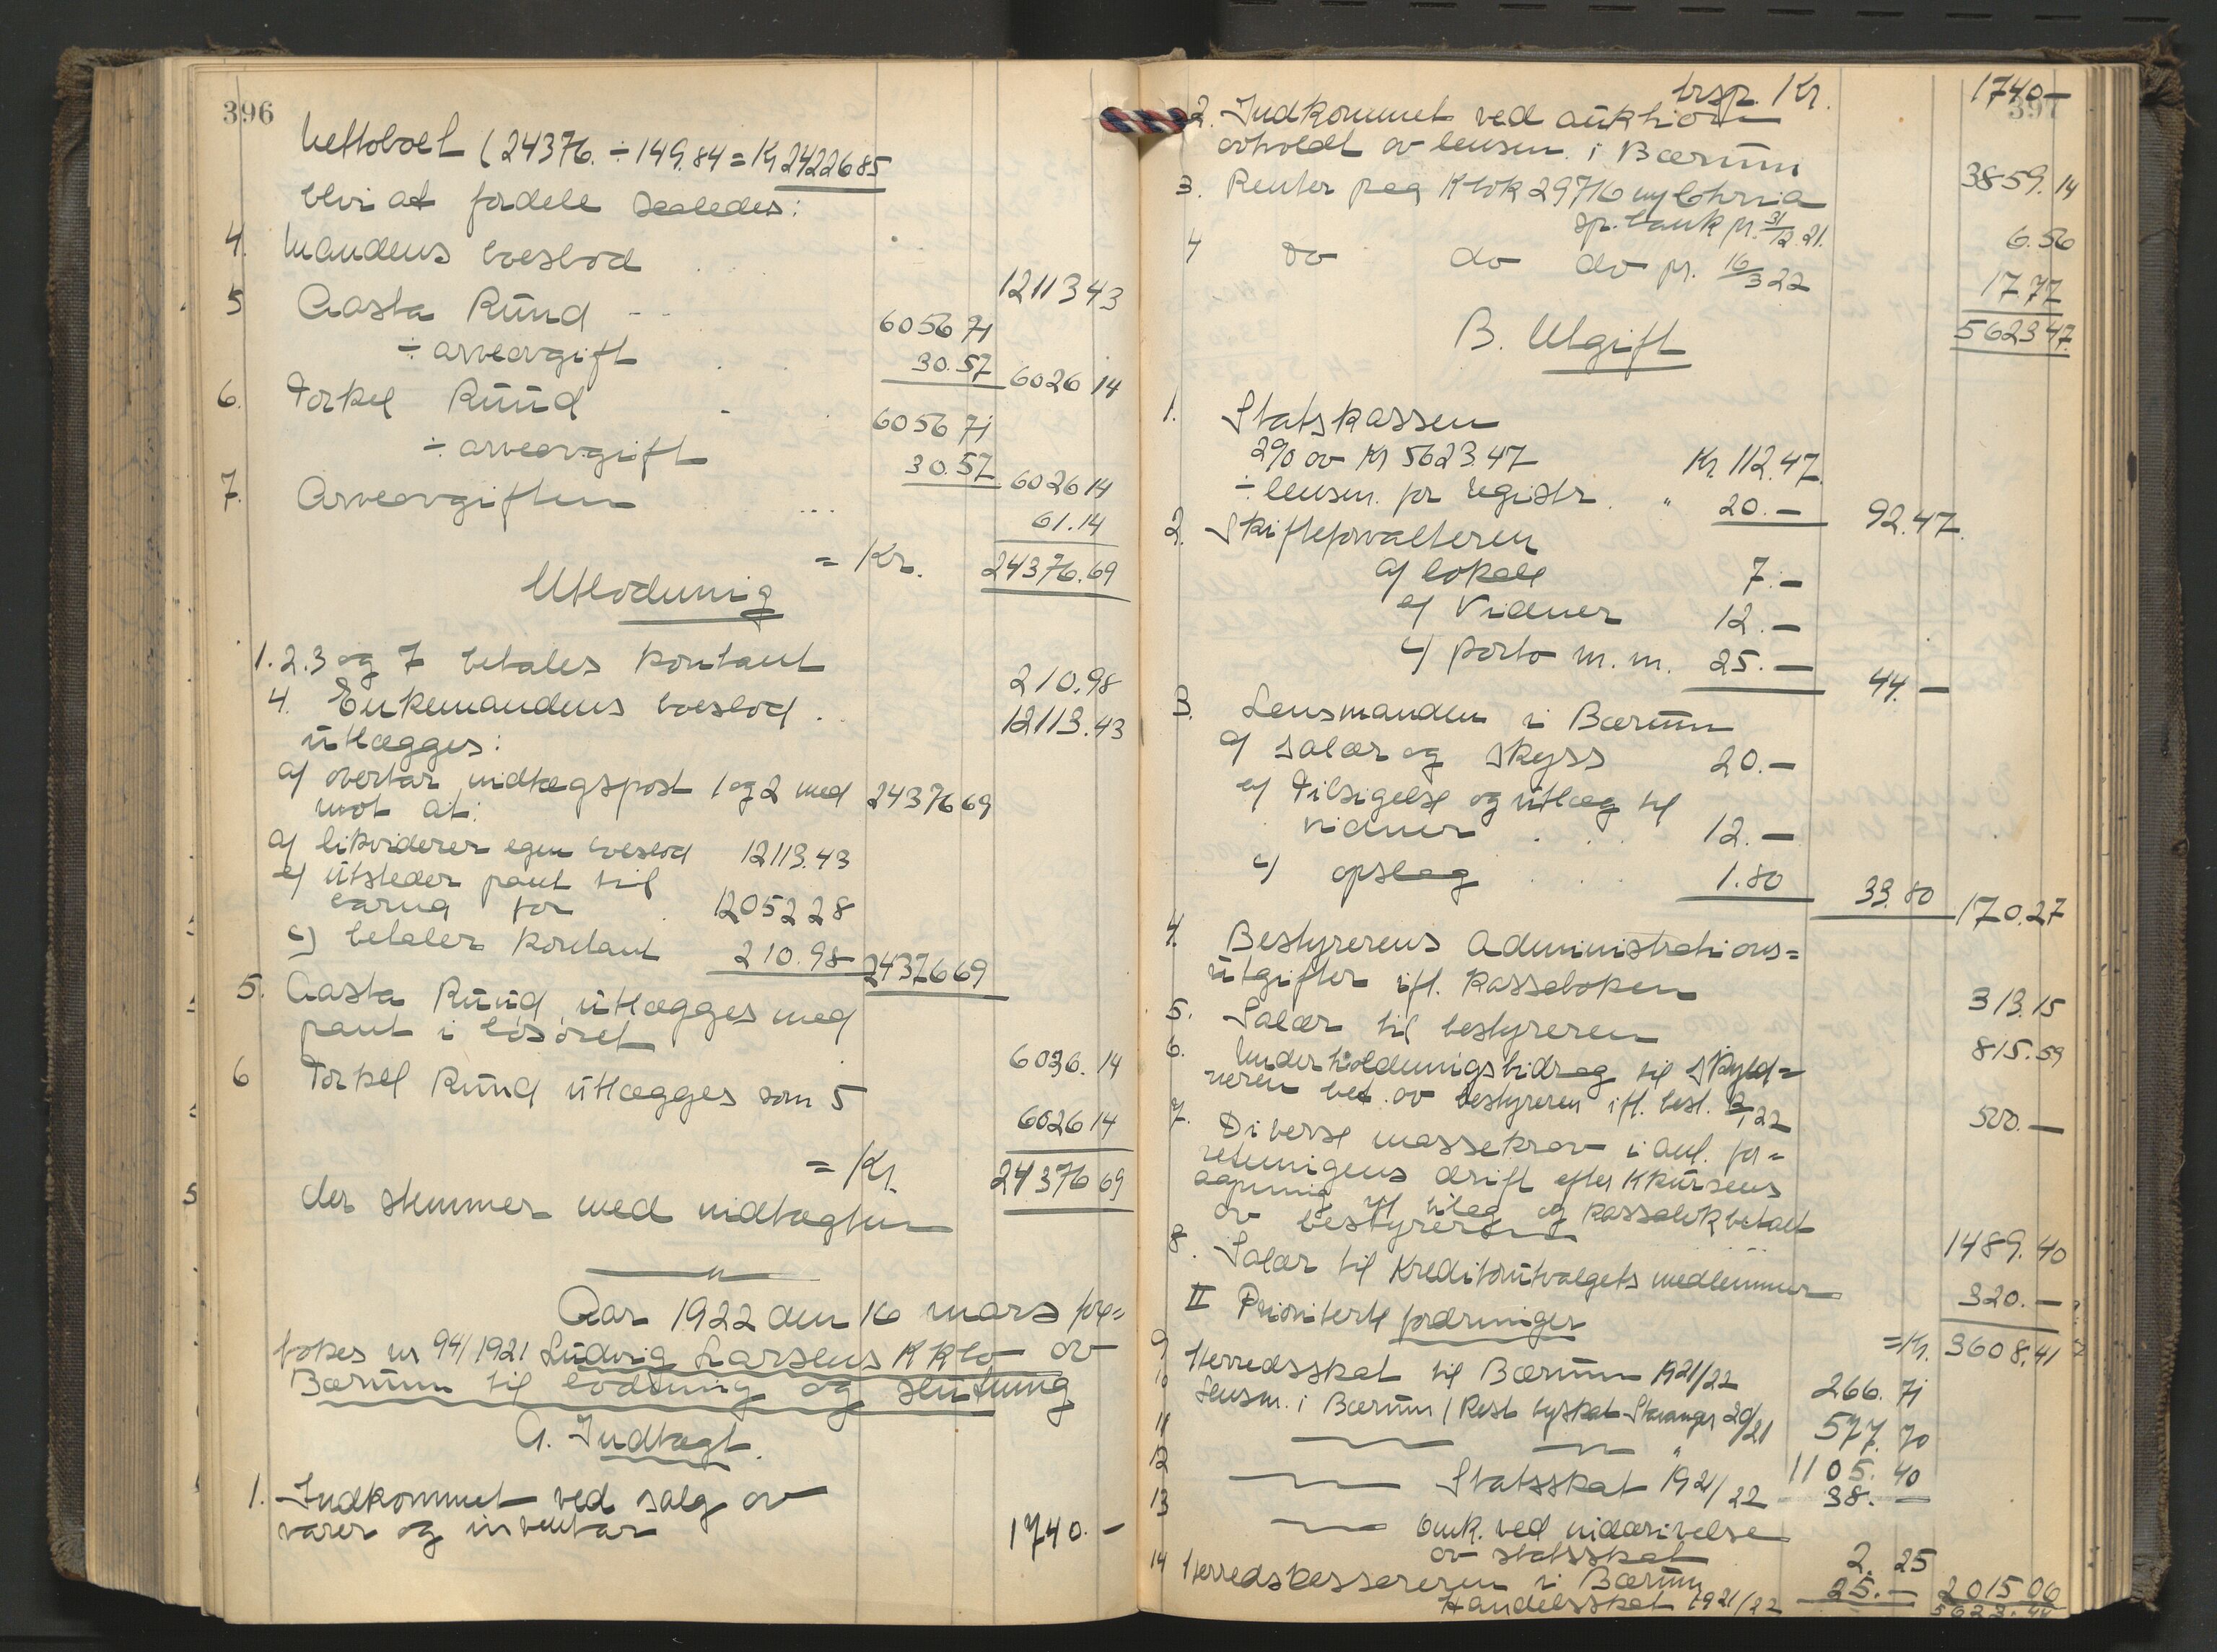 396
Nettoboet (24376. ÷ 149.84 = Kr 24226 85
blir at fordele saaledes:
4. Mandens boeslod . . . 12113 43
5 Aasta Ruud - - 6056 71
÷ arveavgift . . 30.57 6026 14
6. Torkel Ruud - . 6056 71
÷ arveavgift 30.57 6026 14
7. Arveavgiften ... 61.14
= Kr. 24376.69
Utlodning
1.2.3 og 7 betales kontant 210.98
4. Enkemandens boeslod . 12113.43
utlægges:
a) overtar indtægspost 1 og 2 med 24376 69
mot at:
a) likviderer egen boeslod 12113.43
b) utsteder pant til
barna for . 12052 28
c) betaler kontant 210.98 24376 69
5. Aasta Ruud utlægges med
pant i løsøret 6026.14
6 Torkel Ruud utlægges som 5 6026 14
= Kr. 24376 69
der stemmer med indtægten
Aar 1922 den 16 mars fore=
tokes nr 94/1921 Ludvig Larsens Kkbo av
Bærum til lodning og slutning
A. Indtægt.
1. Indkommet ved salg av
varer og inventar 1740.-
397
trsp. Kr. 1740 -
2. Indkommet ved auktion
avholdt av lensm. i Bærum 3859.14
3. Renter paa Kbok 29716
sp.bank pr. 31/12 21. 6.56
4 do do do pr. 16/3 22 17.77
5623 47.
B. Utgift
1. Statskassen
2% av Kr 5623.47 Kr. 112.47
÷ lensm. for registr. " 20.- 92.47.
2. Skifteforvalteren
a) lokale 7.-
b) Vidner 12.-
c) porto m. m. 25.- 44.-
3. Lensmanden i Bærum
a) salær og skyss 20.-
b) Tilsigelse og utlæg til
vidner . . . 12.-
c) opslag . . . 1.80 33.80 170.27
4. Bestyrerens Administrations=
utgifter ifl. kasseboken 313.15
5. Salær til bestyreren 815.59
6. Underholdningsbidrag til skyld=
neren bet. av bestyreren ifl. besl. 2/2 22 500.-
7. Diverse massekrav i anl. for=
retningens drift efter Kkursens
aapning ifl. bilag og kassebok betalt
av bestyreren 1489.40
8. Salær til Kreditorutvalgets medlemmer 320.-
= Kr. 3608.41
II Prioriterte fordringer
9 Herredsskat til Bærum 1921/22 266.71
10 Lensm. i Bærum (Rest byskat Stavanger 20/21 577.70
11 — — " 1105.40
12 — Statsskat 1921/22 38.-
13 — Omk. ved inddrivelse
av statsskat 2.25
14 Herredskassereren i Bærum
Handelsskat 1921/22 25.- 2015 06